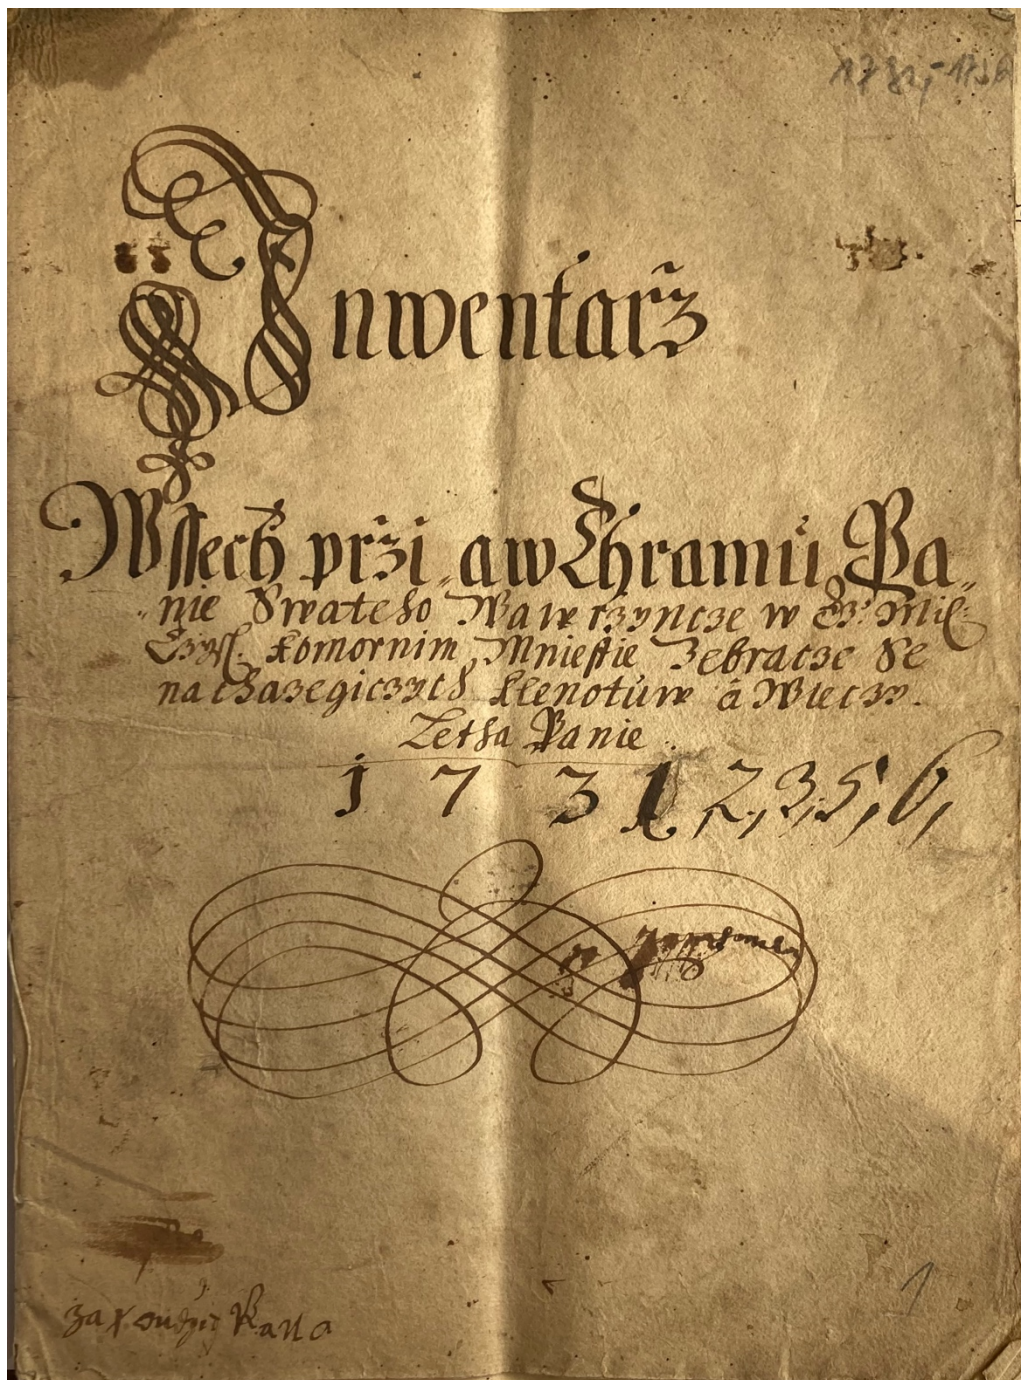 Inwentarž
Wssech przi, a w Chramŭ Pa„
„nie Swateho Wawrzyncze w
komornim Mniestie Zebracze Se
nachazegiczych klenotuw á Wieczy.
Letha Panie
1 7 3 1, 2, 3, 5, 6,
Pana
1